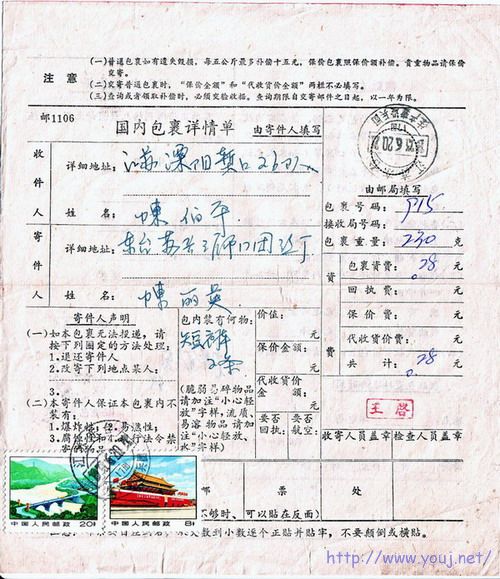 注意
(一)普通包裹如有遗失毁损，每五公斤最多补偿十五元，保价包裹照保价额补偿。贵重物品请保价
交寄。
(二)交寄普通包裹时，“保价金额”和“代收货价金额”两栏不必填写。
(三)查询或者领取补偿时，必须交验收据。查询期限自交寄邮件之日起，以一年为限。
邮1106
国内包裹详情单 由寄件人填写
收件人
详细地址：江苏溧阳
姓名：陈伯平
寄件人
详细地址：东台
姓名：陈丽英
由邮局填写
包裹号码：915
接收局号码：
包裹重量：230 克
资费
包裹资费：.78 元
回执费： 元
保价费： 元
代收货价费： 元
共计：.78 元
寄件人声明
(一)如本包裹无法投递，请
按下列圈定的方法处理：
1.退还寄件人
2.改寄下列地点某人：
3.
(二)寄件人保证本包裹内不
装有：
1.爆炸性、易燃性；
包内装有何物：
短裤
2条
(脆弱易碎物品
请加注“小心轻
放”字样，流质、
易溶物品请加
注“小心轻放、
水”字样)
价值：
元
保价金额：
元
代收货价
金额：
元
要否
回执：
要否
航空：
王啓
收寄人员盖章 检查人员盖章
80.6.20
邮票处
不够时，可以贴在反面)
中国人民邮政 20分
中国人民邮政 8分
小数逐个正贴并贴牢，不要颠倒或横贴。
http://www.youj.net/